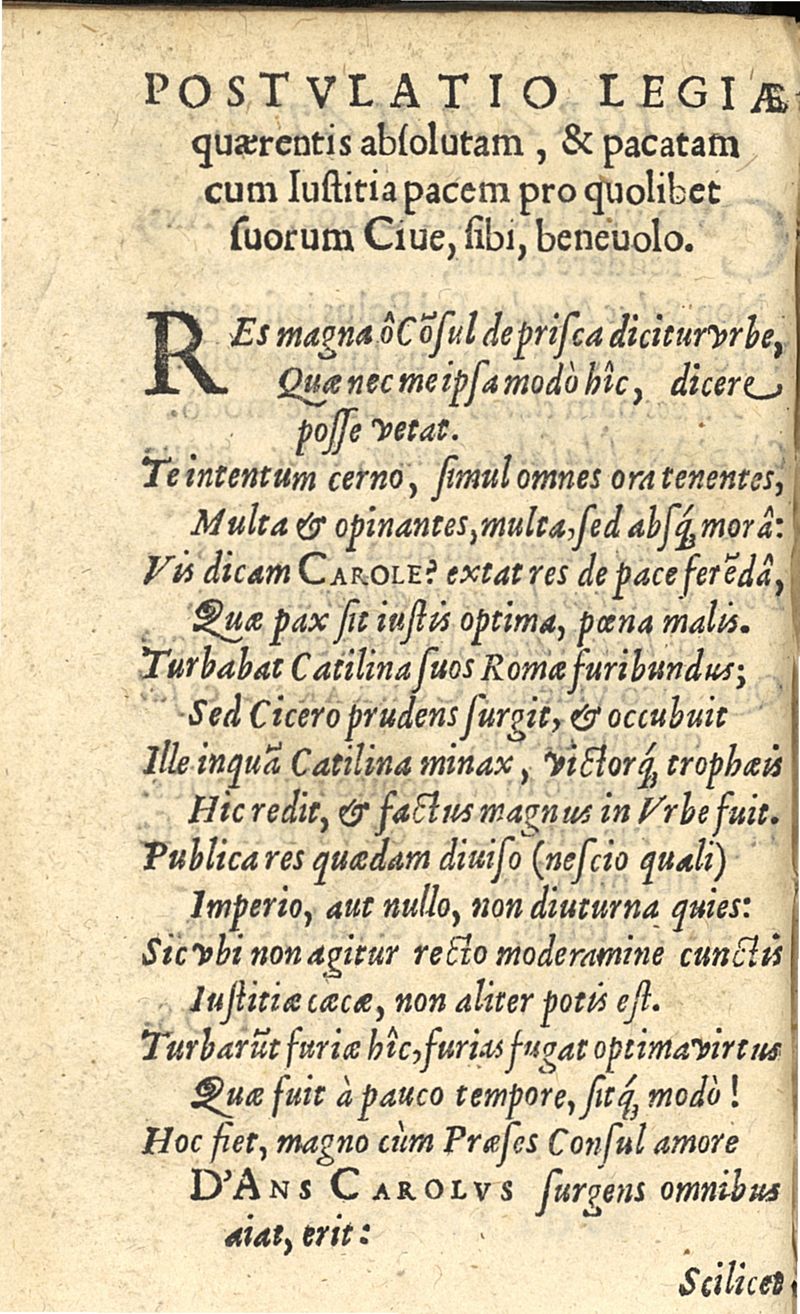 POSTVLATIO LEGIÆ
quærentis absolutam, & pacatam
cum Iustitia pacem pro quolibet
suorum Ciue, sibi, beneuolo.
REs magna ô Cõsul de prisca dicitur vrbe,
Quæ nec me ipsa modò hîc, dicere
posse vetat.
Te intentum cerno, simul omnes ora tenentes,
Multa & opinantes, multa, sed absq́; morâ:
Vis dicam CAROLE? extat res de pace ferẽdâ,
Quæ pax sit iustis optima, pœna malis.
Turbabat Catilina suos Romæ furibundus;
Sed Cicero prudens surgit, & occubuit
Ille inquã Catilina minax, victorq́; trophæis
Hic redit, & factus magnus in Vrbe fuit.
Publica res quædam diuiso (nescio quali)
Imperio, aut nullo, non diuturna quies:
Sic vbi non agitur recto moderamine cunctis
Iustitiæ cæcæ, non aliter potis est.
Turbarũt furiæ hîc, furias fugat optima virtus
Quæ fuit à pauco tempore, sitq́; modò!
Hoc fiet, magno cùm Præses Consul amore
D'ANS CAROLVS surgens omnibus
aiat, erit:
Scilicet